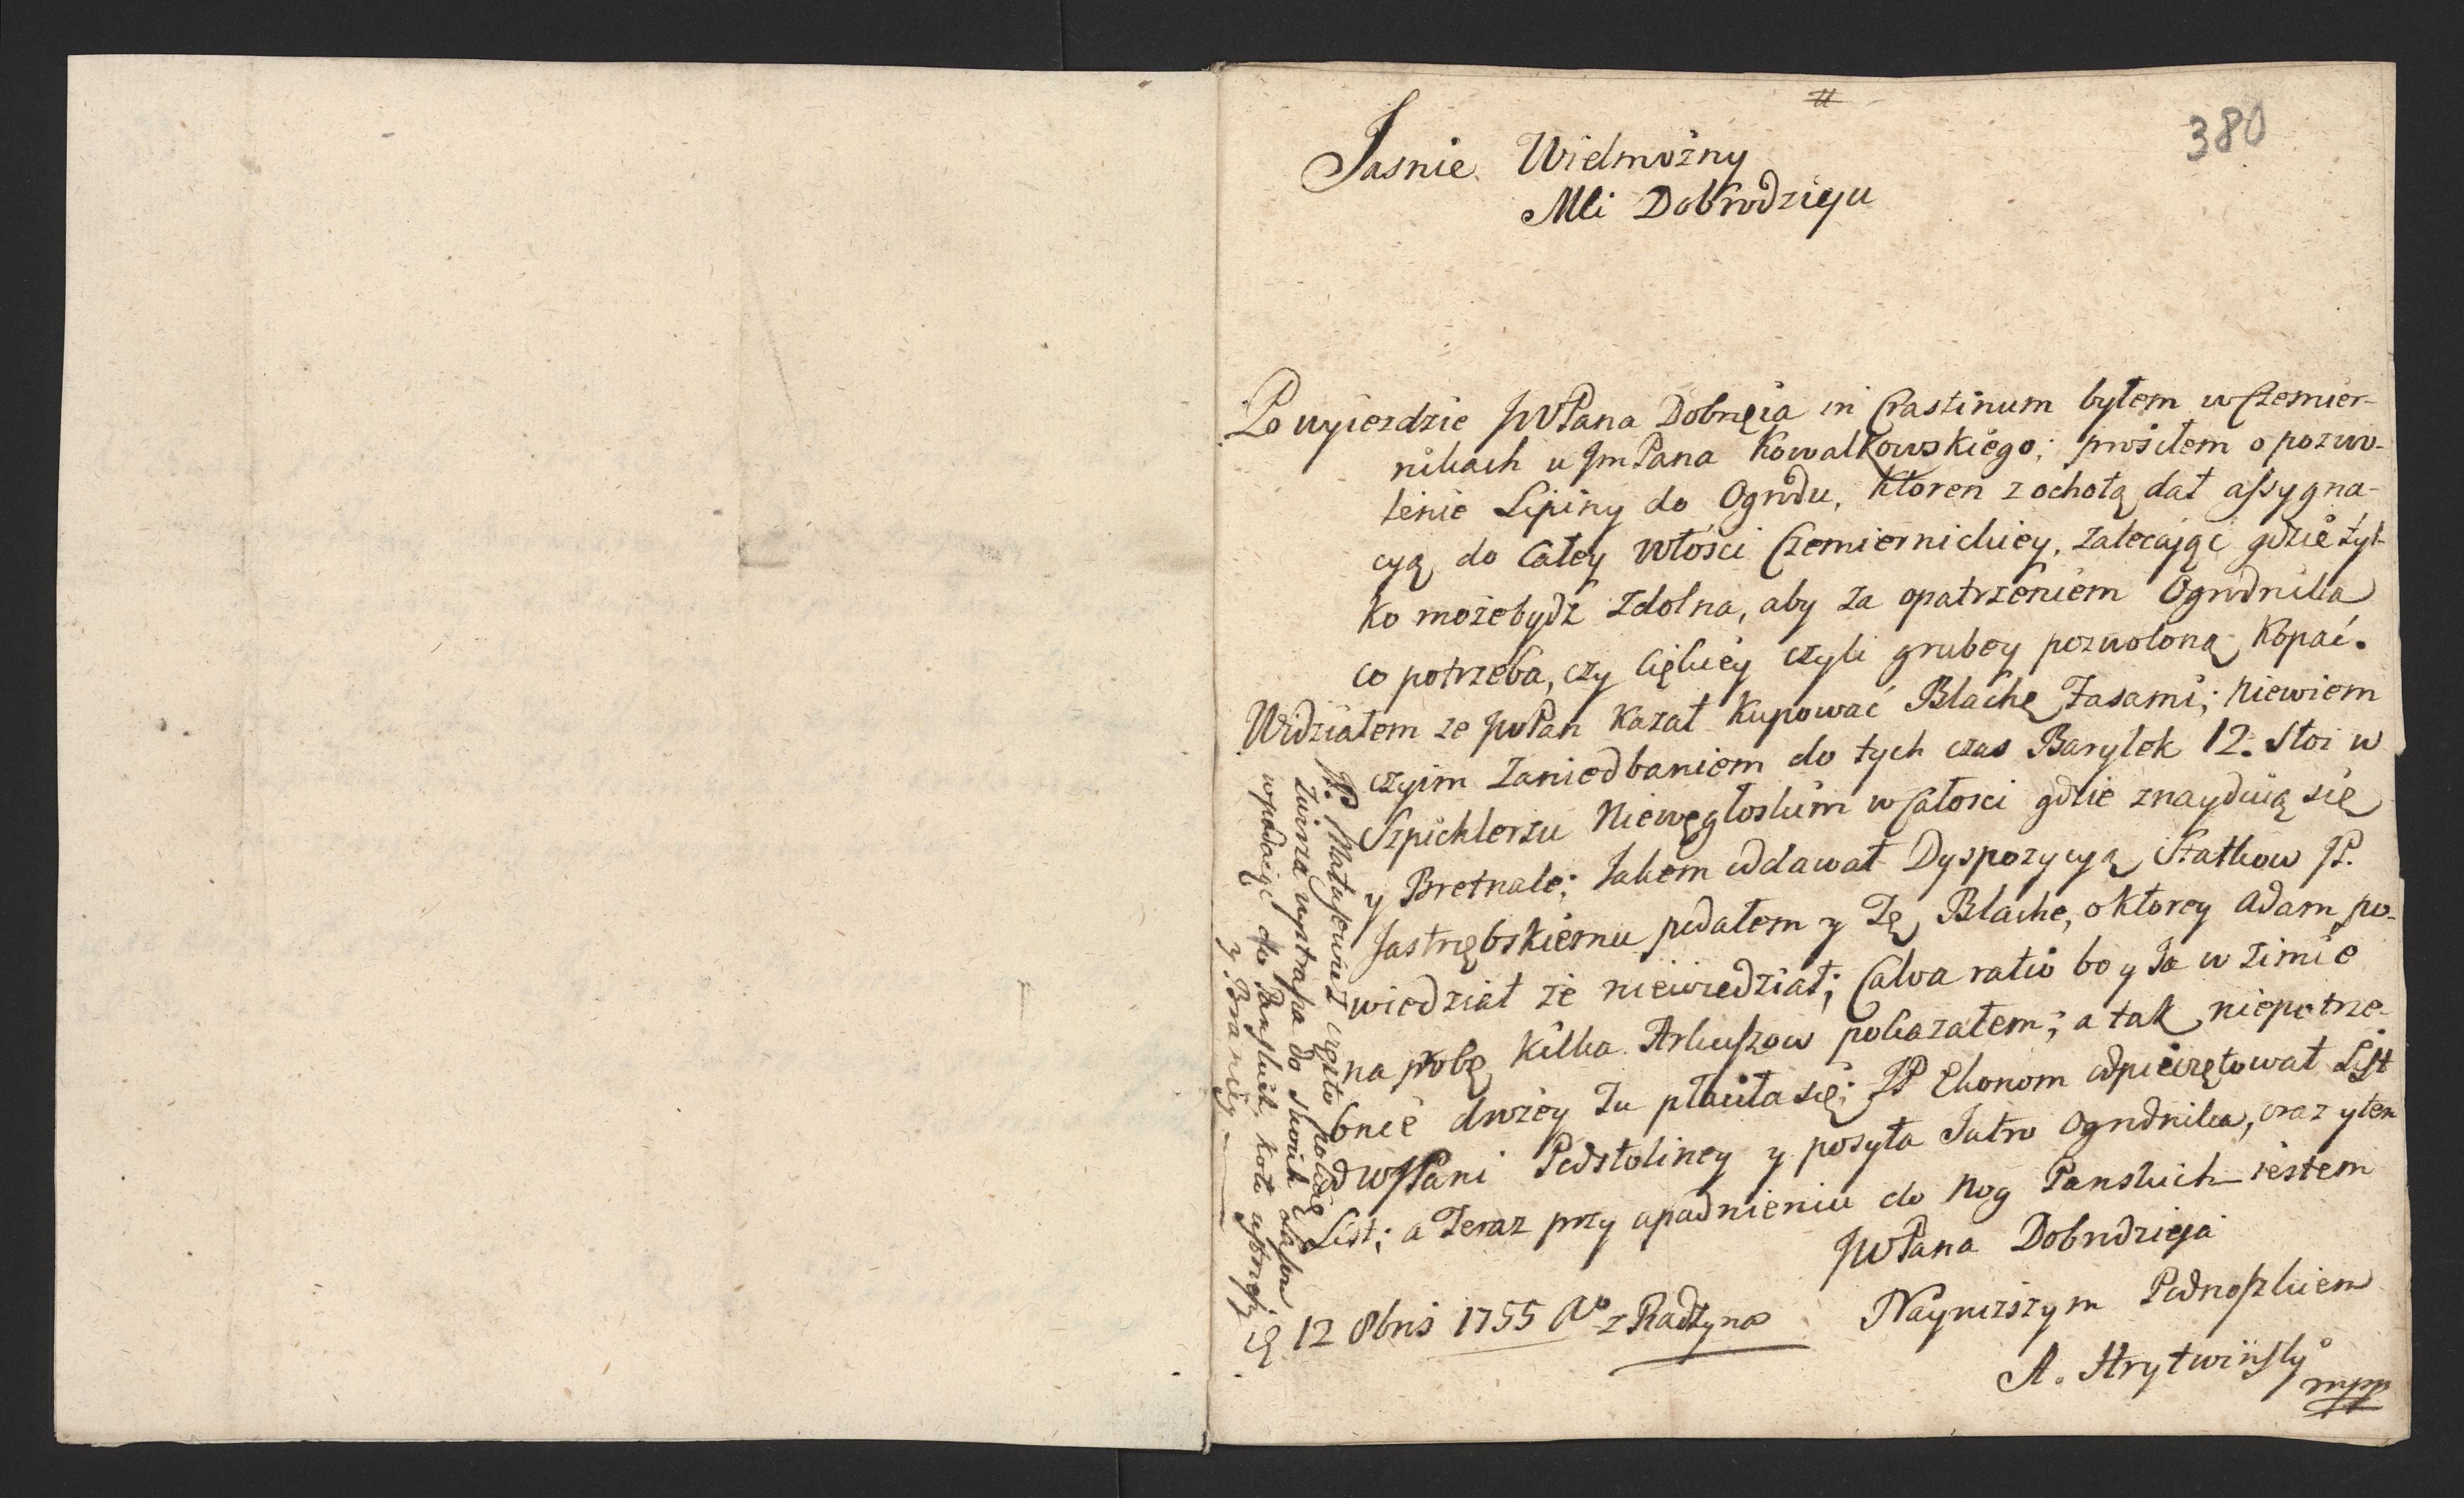 #
380
Jasnie Wielmożny
Mći Dobrodzieju
Po wyiezdzie JWPana Dobreia in Crastinum byłem w Czemier-
nikach u JmPana Kowalkowskiego; prosiłem o pozwo-
lenie Lipiny do Ogrodu, ktoren z ochotą dał assygna-
cyą do Całey włości Czemiernickiey, zalecaiąc gdzie tyl-
ko może bydź zdolna, aby za opatrzeniem Ogrodnika
co potrzeba, czy Cięki​ey czyli grubey pozwoloną kopać.
Widziałem ze JWPan kazał kupować Blachę Fasami; niewiem
czyim zaniedbaniem do tych czas Baryłek 12. stoi w
Szpichlerzu Niewęgłoskim w Całosci gdzie znayduią się
y Bretnale; Jakem oddawał Dyspozycyą Statkow JP.
Jastrzębskiemu podałem y Tę Blache, o ktorey Adam po-
wiedział że niewiedział; Calva ratio bo y Ja w zimie
na probę kilka Arkuszow pokazałem; a tak niepotrze-
bnie drożey Tu płaciła się; JP Ekonom odpieczętował List
od WJPani Podstoliney y posyła Jutro Ogrodnika, oraz y ten
List; a Teraz przy upadnieniu do Nog Panskich iestem
JWPana Dobrodzieja
Nayniższym Podnoszkiem
12 8bris 1755 Ao z Radzynia
A. Hrytwinsky
mpp
JP. Matusewicz często poluie
zwierza wystrasza do swoich Lasow
wpadaiąc do Panskich, koło
y Braney.